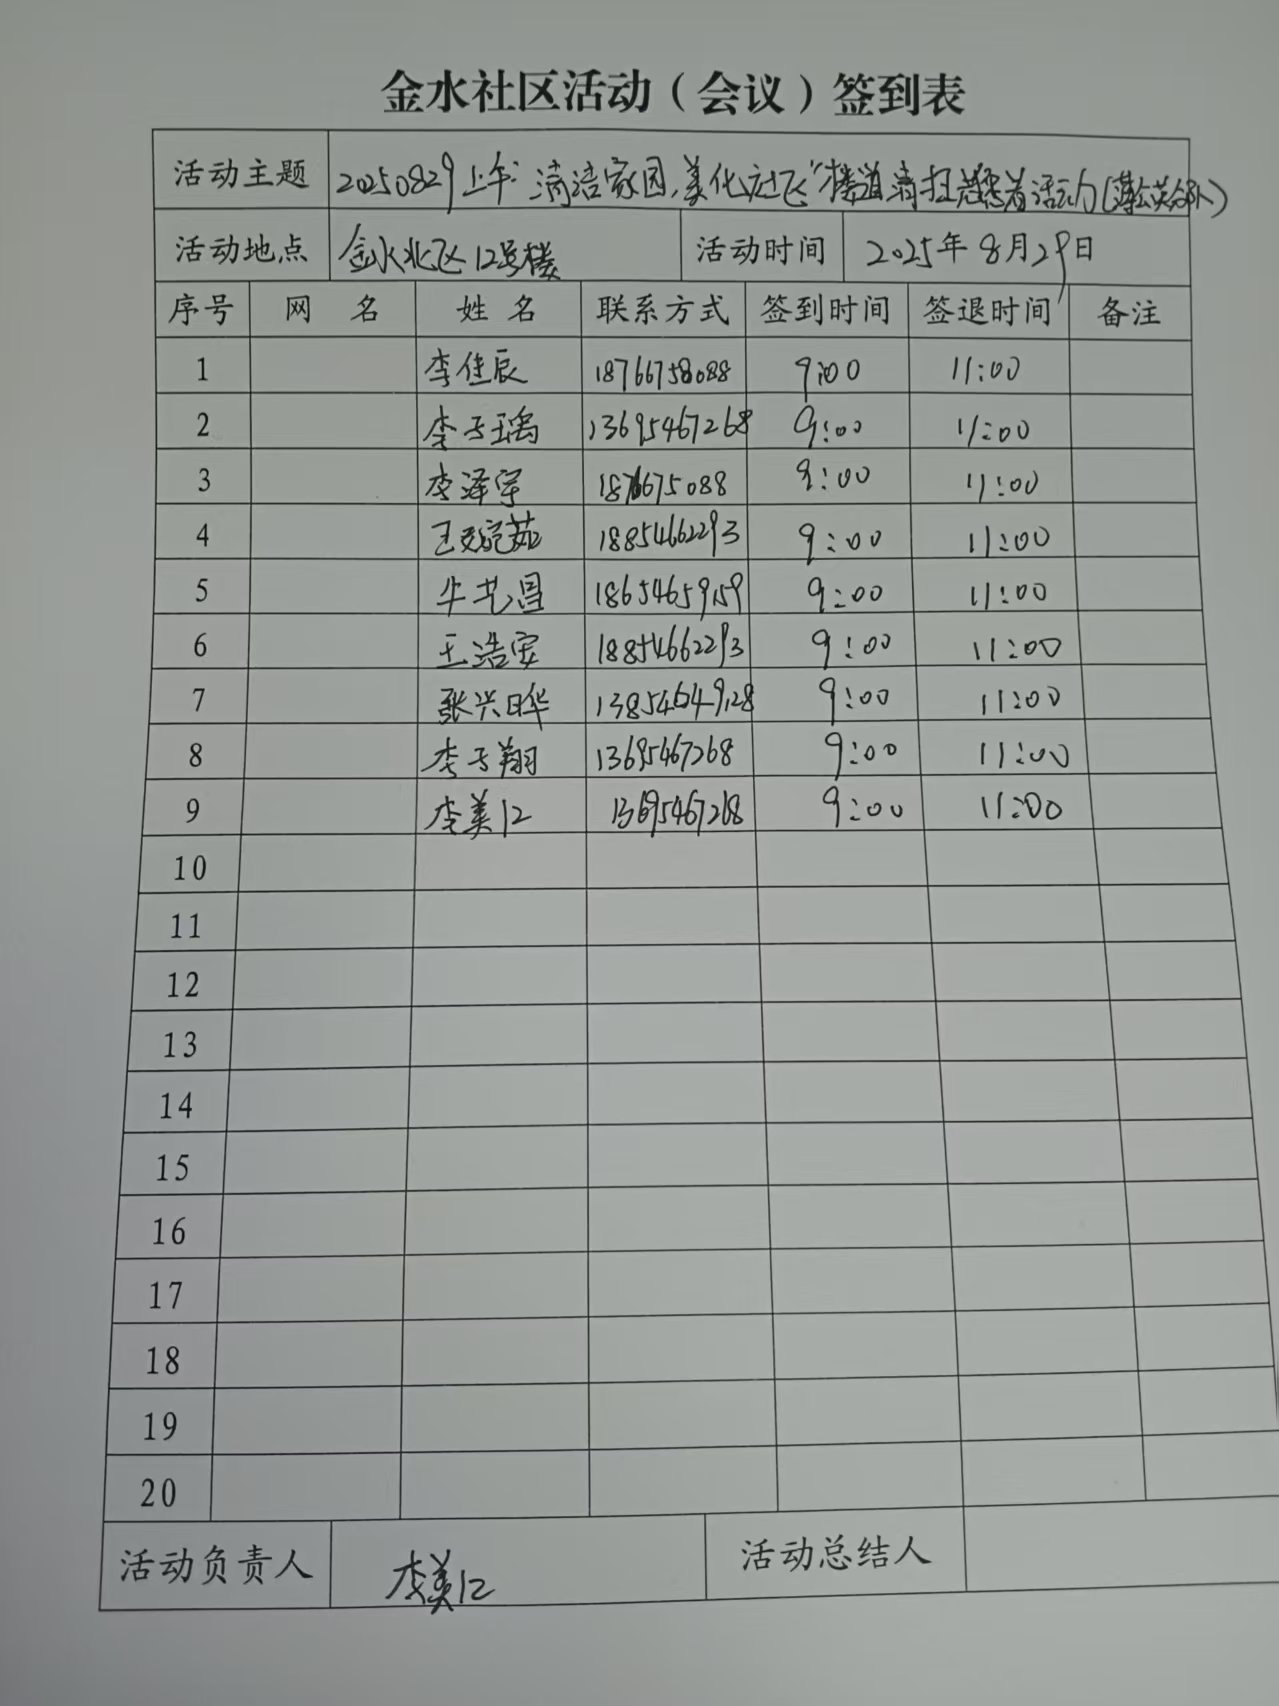 金水社区活动（会议）签到表
活动主题 20250829上午"清洁家园,美化社区"楼道清扫志愿者活动(蒲公英分队)
活动地点 金水北区12号楼 活动时间 2025年8月29日
序号 网 名 姓 名 联系方式 签到时间 签退时间 备注
1 李佳辰 18766758088 9:00 11:00
2 李子瑀 13695467268 9:00 11:00
3 李泽宇 1876675088 9:00 11:00
4 王 18854662293 9:00 11:00
5 牛艺昌 18654659159 9:00 11:00
6 王浩安 18854662293 9:00 11:00
7 张兴晔 13854649128 9:00 11:00
8 李子翔 13695467268 9:00 11:00
9 李美江 13695467268 9:00 11:00
10
11
12
13
14
15
16
17
18
19
20
活动负责人 李美江 活动总结人